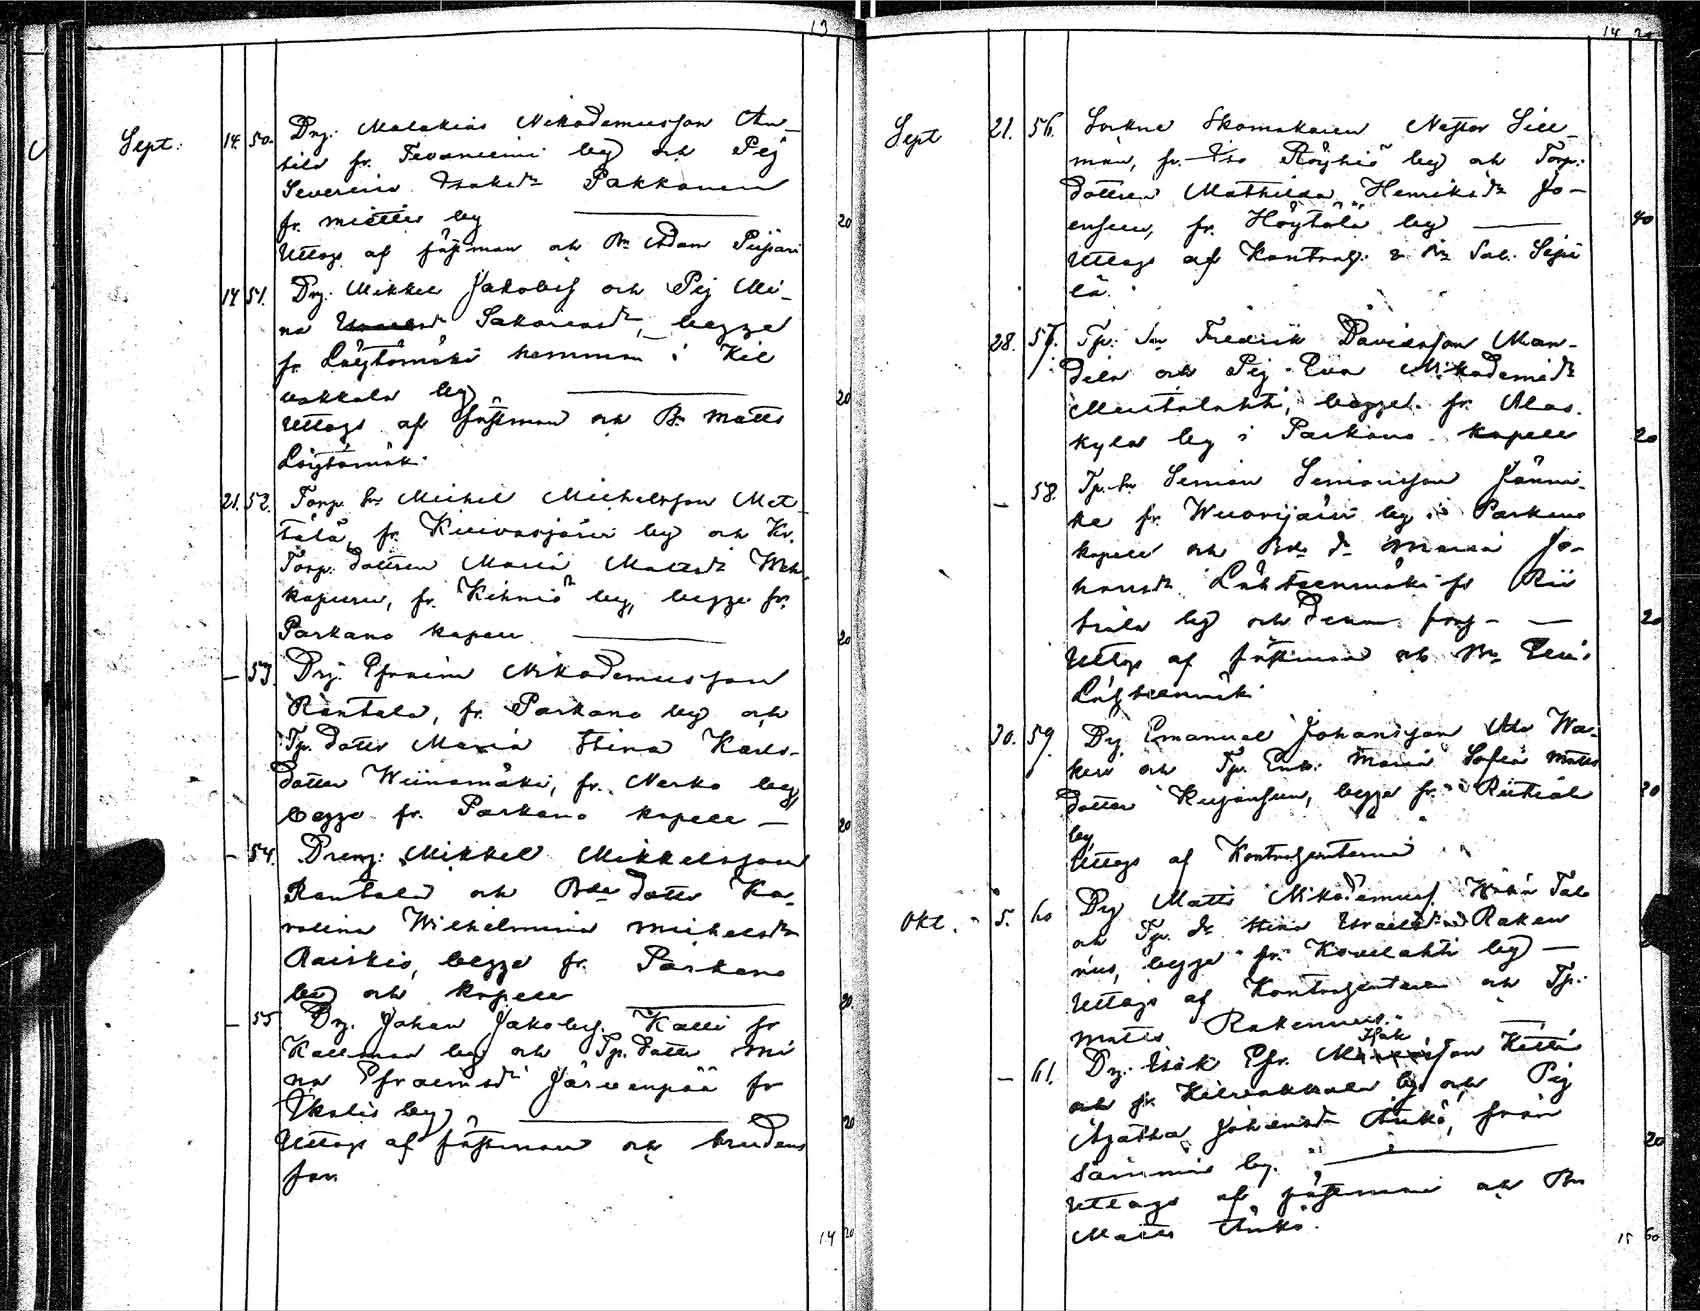 13
Sept. 14. 50. Drg. Malakias Nikodemusson An-
tila fr. Tevaniemi by och Pig
Severina Isaksdr Pakkanen
fr. Miettis by 20
Uttogs af fästman och Bn Adam Pispari
14 51. Drg. Mikkel Jakobss och Pig Mi-
na Sakariasdr, begge
fr. Löytömäki hemman i Kil
vakkala by 20
Uttogs af fästman och Bn Matts
Löytömäki.
21. 52. Torp. Sn Michel Michelsson Met-
tälä, fr. Kuivasjärvi by och Kr.
Torp. dottren Maria Mattsdr Weh-
kapuru, fr. Kihniö by, begge fr.
Parkano kapell 20
— 53. Drg. Efraim Nikodemusson
Rantala, fr. Parkano by och
Tp. dotter Maria Stina Karls-
dotter Wiinamäki, fr. Nerko by,
begge fr. Parkano kapell — 20
— 54. Dreng. Mikkel Mikkelsson
Rantala och Bde dotter Ka-
rolina Wilhelmina Mickelsdr
Raiskio, begge fr. Parkano
by och kapell 20
— 55 Drg. Johan Jakobss. Kalli fr
by och Tp. dotter Mi
na Efraimsdr Järvenpää fr
Ikalis by 20
Uttogs af fästman och brudens
far.
14 20
14 20
Sept 21. 56. Sockne Skomakaren Nestor Sill-
man, fr. Iso Röyhiö by och Torp.
dottren Mathilda Henriksdr Jo-
ensuu, fr. Höytölä by 40
Uttogs af Kontrah. & Bn Sal. Seppä
lä.
28. 57. Tp. Sn Fredrik Davidsson Man-
dela och Pig Eva Nikodemidr
Mustalahti, begge fr. Alas-
kylä by i Parkano kapell 20
— 58. Tp. Sn Simon Simonsson Jänni-
ke fr. Wuorijärvi by i Parkano
kapell och Bde dr Maria Jo-
hansdr Lähteenmäki fr Rii
tiala by och denna förs. — 20
Uttogs af fästman och Bn
Lähteenmäki
30. 59. Drg Emanuel Johansson Ala Wa-
keri och Tp. Enk. Maria Sofia Matts
dotter Kujansuu, begge fr. Riitiala 20
by
Uttogs af Kontrahenterne
Okt. 5. 60 Drg Matts Nikodemuss
och Tp. dr Stina Israelsdr Raken
nus, begge fr. Kovelahti by —
Uttogs af Kontrahenterne och Tp.
Matts Rakennus.
Isak
— 61. Drg. Isak Efr. son
och fr. Kilvakkala by och Pig
Agatha Johansdr Ånkö, från
samma by. 20
Uttogs af fästman och Bn
Matts Ånkö.
15 60